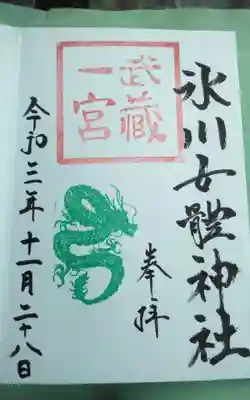 氷川女體神社
奉拝
武蔵
一宮
令和三年十一月二十八日